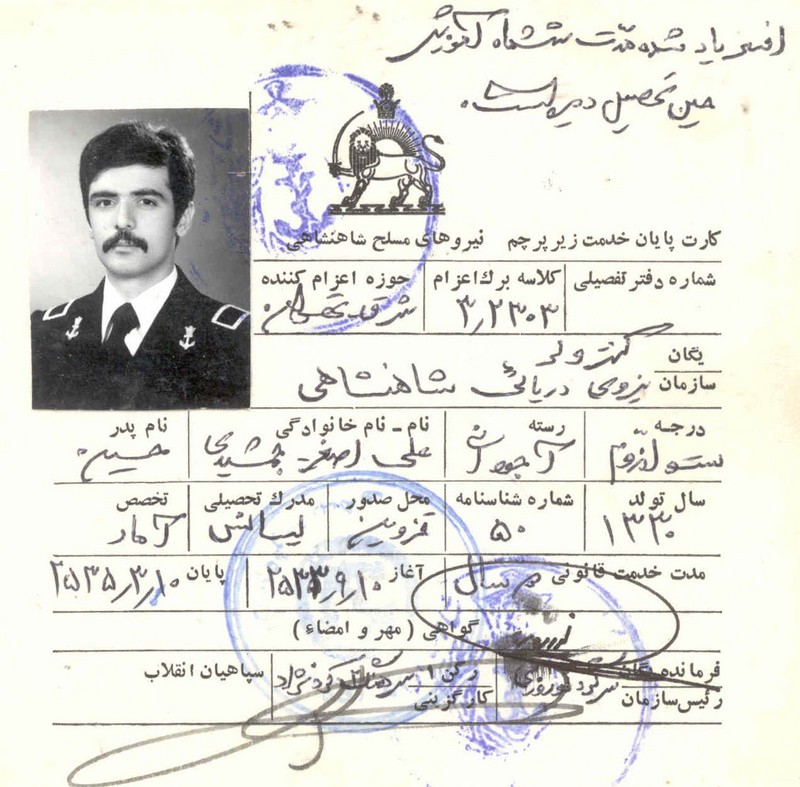 افسر یاد شده مدت ششماه آموزش
حین تحصیل دیده است.
کارت پایان خدمت زیر پرچم نیروهای مسلح شاهنشاهی
شماره دفتر تفصیلی کلاسه برگ اعزام حوزه اعزام کننده
۳٫۲۳۰۳ شرق تهران
یگان
سازمان نیروی دریائی شاهنشاهی
درجه رسته نام - نام خانوادگی نام پدر
ستوان دوم علی اصغر جمشیدی حسین
سال تولد شماره شناسنامه محل صدور مدرک تحصیلی تخصص
۱۳۳۰ ۵۰ قزوین لیسانس آمار
مدت خدمت قانونی سال آغاز ۲۵۳۳٫۹٫۱۰ پایان ۲۵۳۵٫۳٫۱۰
گواهی (مهر و امضاء)
فرمانده یگان رکن ۱ سپاهیان انقلاب
رئیس سازمان سرگرد نوروزی کارگزینی